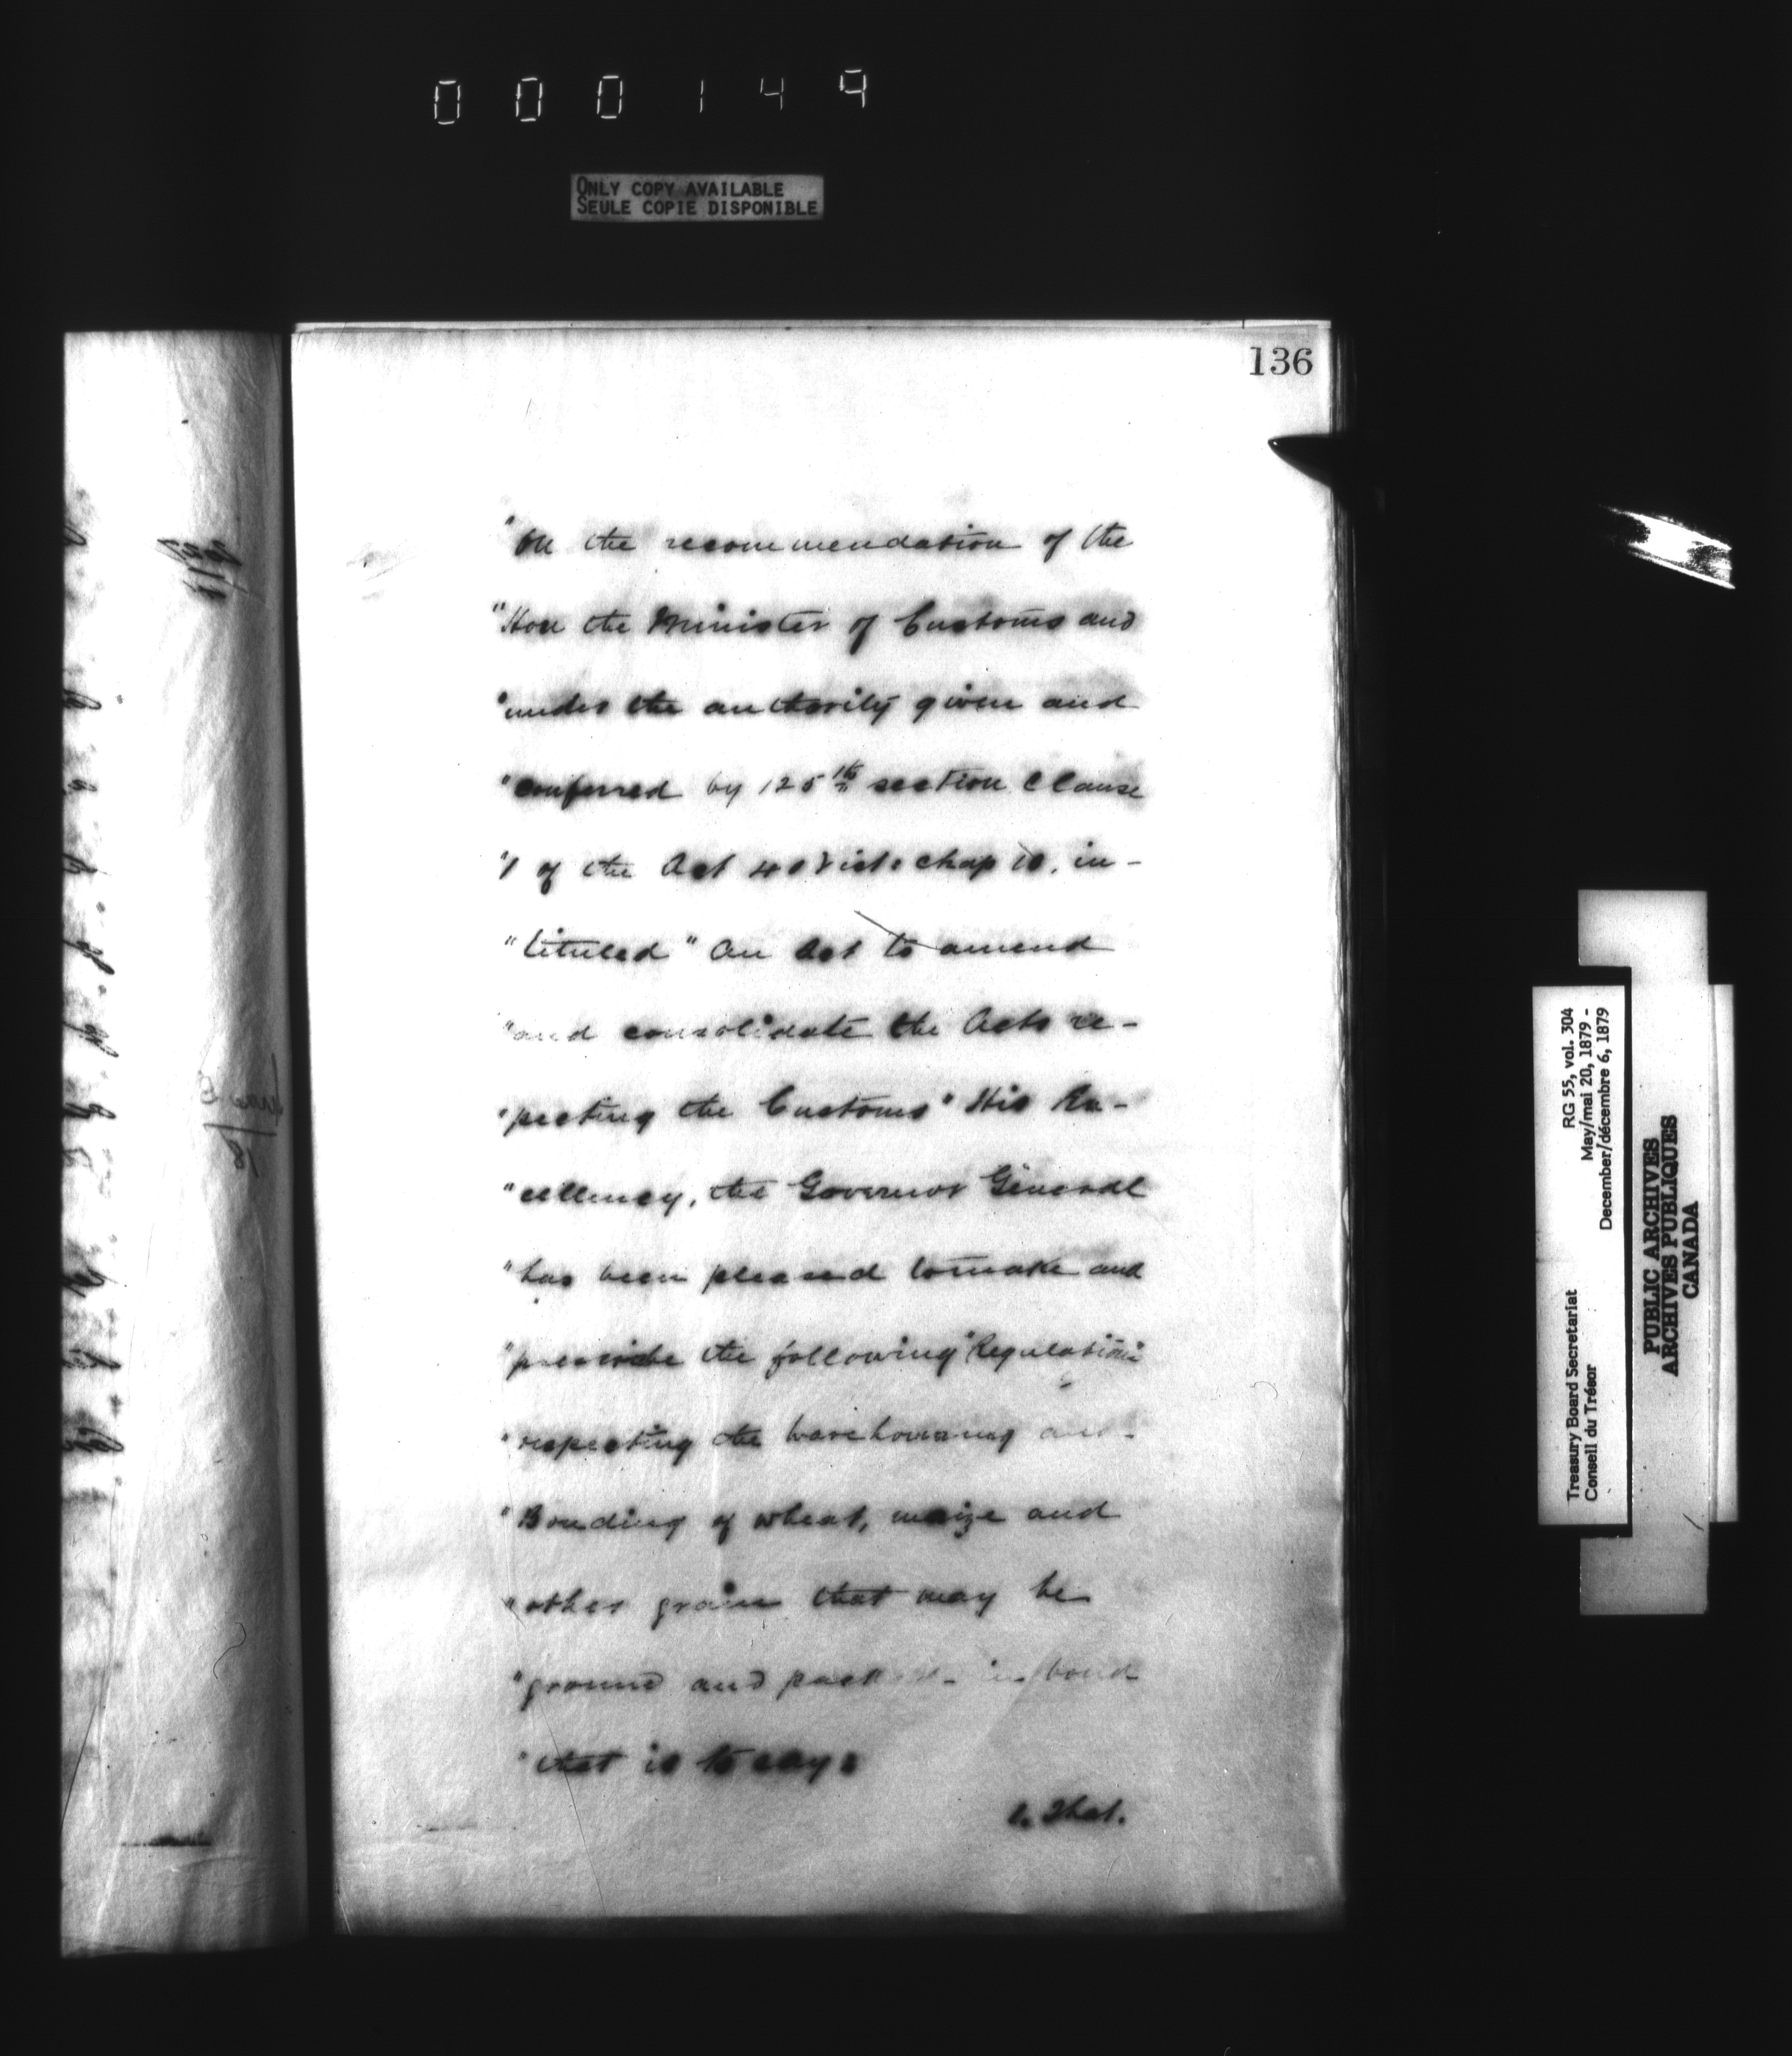 000149
ONLY COPY AVAILABLE
SEULE COPIE DISPONIBLE
136
"On the recommendation of the
"Hon the Minister of Customs and
"under the authority given and
"conferred by 125th section Clause
"1 of the Act 40 Vict: chap 10. in-
"tituled "An Act to amend
"and consolidate the Acts re-
"pecting the Customs" His Ex-
"cellency, the Governor General
"has been pleased to make and
"prescribe the following Regulations
"respecting the warehousing and
"Bonding of wheat, maize and
"other grain that may be
"ground and packed in bond
"that is to say:
1. That.
RG 55, vol. 304
May/mai 20, 1879 -
December/décembre 6, 1879
Treasury Board Secretariat
Conseil du Trésor
PUBLIC ARCHIVES
ARCHIVES PUBLIQUES
CANADA